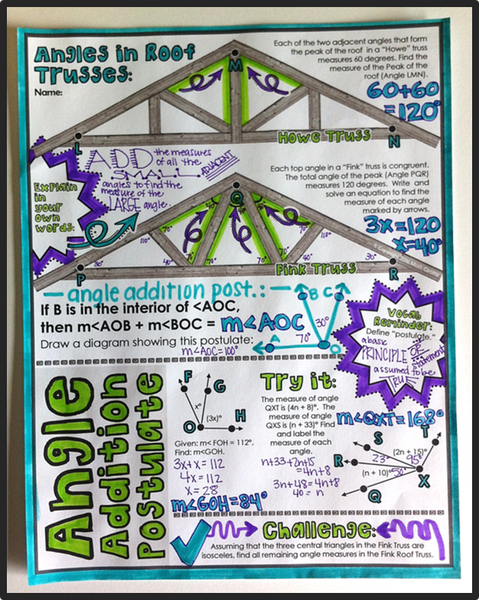 Angles in Roof
Trusses:
Name:
Each of the two adjacent angles that form
the peak of the roof in a "Howe" truss
measures 60 degrees. Find the
measure of the Peak of the
roof (Angle LMN).
60+60
=120°
M
L
Howe Truss
N
ADD the measures
of all the
SMALL ADJACENT
angles to find the
measure of the
LARGE angle.
Explain
in
your
own
words:
Each top angle in a "Fink" truss is congruent.
The total angle of the peak (Angle PQR)
measures 120 degrees. Write and
solve an equation to find the
measure of each angle
marked by arrows.
3x=120
x=40°
Q
P
Fink Truss
R
angle addition post.:
If B is in the interior of <AOC,
then m<AOB + m<BOC = m<AOC
Draw a diagram showing this postulate:
m<AOC=100°
B
C
A
70°
30°
Vocab
Reminder:
Define "postulate."
a basic
PRINCIPLE OF
statement
assumed to be
TRUE
Angle
Addition
Postulate
F
G
O
H
(3x)°
Given: m< FOH = 112°.
Find: m<GOH.
3x+x=112
4x=112
x=28
m<GOH=84°
Try it:
The measure of angle
QXT is (4n + 8)°. The
measure of angle
QXS is (n + 33)° Find
and label the
measure of each
angle.
n+33+2n+15
=4n+8
3n+48=4n+8
40=n
m<QXT=168°
S
T
R
(2n + 15)°
95°
23°
(n + 10)°
X
Q
Challenge:
Assuming that the three central triangles in the Fink Truss are
isosceles, find all remaining angle measures in the Fink Roof Truss.